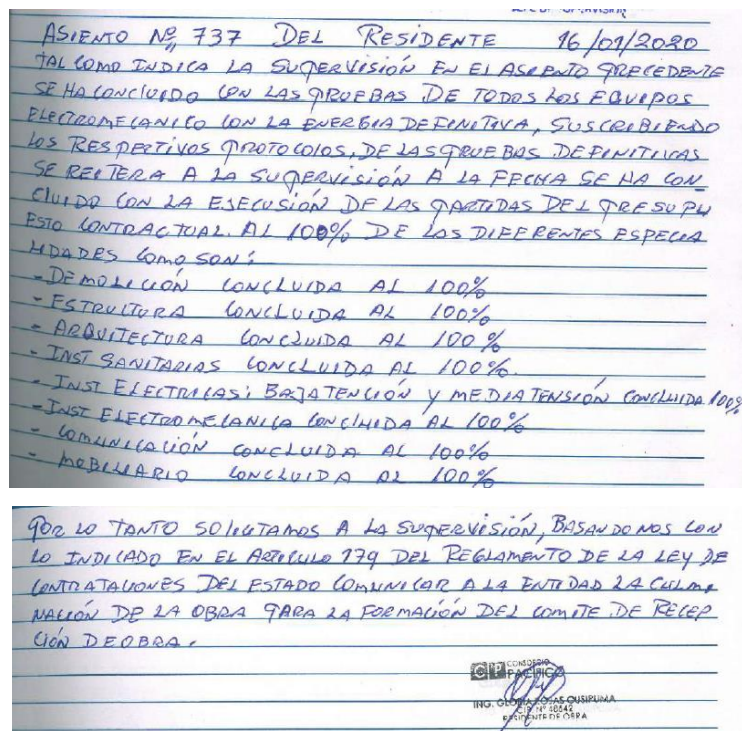 ASIENTO Nº 737 DEL RESIDENTE 16/01/2020
TAL COMO INDICA LA SUPERVISIÓN EN EL ASIENTO PRECEDENTE
SE HA CONCLUIDO CON LAS PRUEBAS DE TODOS LOS EQUIPOS
ELECTROMECANICO CON LA ENERGIA DEFINITIVA, SUSCRIBIENDO
LOS RESPECTIVOS PROTOCOLOS, DE LAS PRUEBAS DEFINITIVAS
SE REITERA A LA SUPERVISIÓN A LA FECHA SE HA CON
CLUIDO CON LA EJECUSIÓN DE LAS PARTIDAS DEL PRESUPU
ESTO CONTRACTUAL. AL 100% DE LOS DIFERENTES ESPECIA
LIDADES COMO SON:
- DEMOLICIÓN CONCLUIDA AL 100%
- ESTRUCTURA CONCLUIDA AL 100%
- ARQUITECTURA CONCLUIDA AL 100%
- INST SANITARIAS CONCLUIDA AL 100%.
- INST ELECTRICAS: BAJA TENCIÓN Y MEDIA TENSIÓN CONCLUIDA 100%
- INST ELECTROMECANICA CONCLUIDA AL 100%
- COMUNICACIÓN CONCLUIDA AL 100%
- MOBILIARIO CONCLUIDA AL 100%
POR LO TANTO SOLICITAMOS A LA SUPERVISIÓN, BASANDONOS CON
LO INDICADO EN EL ARTICULO 179 DEL REGLAMENTO DE LA LEY DE
CONTRATACIONES DEL ESTADO COMUNICAR A LA ENTIDAD LA CULMI
NACIÓN DE LA OBRA PARA LA FORMACIÓN DEL COMITE DE RECEP
CIÓN DE OBRA.
CP CONSORCIO
PACHIGO
ING. GLORIA ROJAS QUSIPUMA
CIP. Nº 48542
RESIDENTE DE OBRA